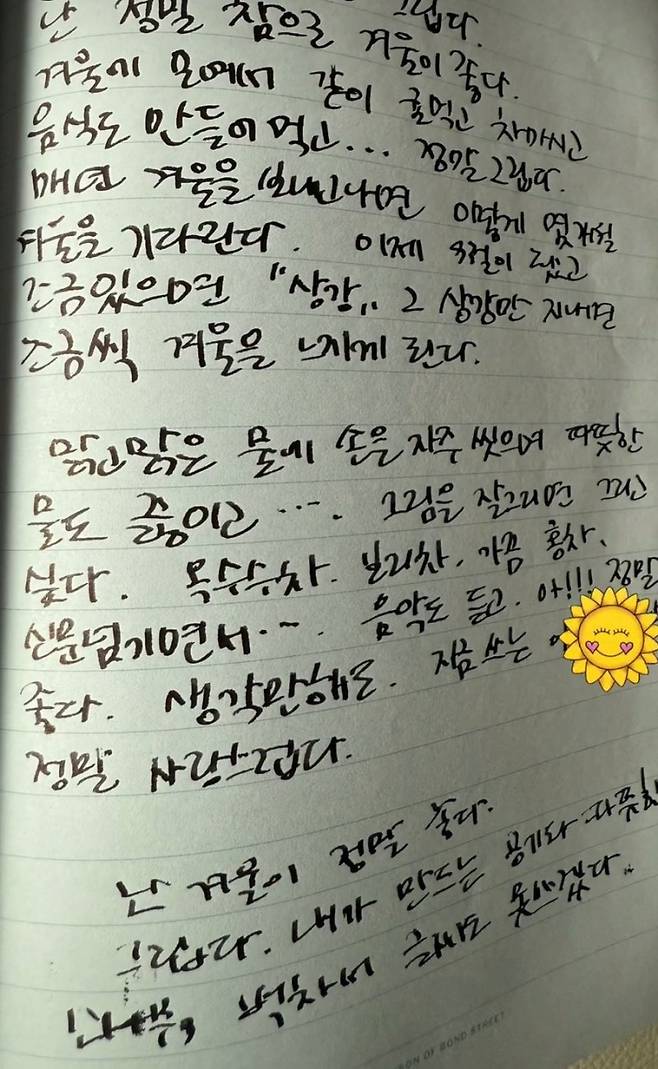 난 정말 참으로 그립다.
겨울이 좋다.
겨울에 모여서 같이 귤먹고 차마시고
음식도 만들어 먹고... 정말 그립다.
매년 겨울을 보내고나면 이렇게 몇개월
겨울을 기다린다. 이제 9월이 됐고
조금있으면 "상강" 그 상강만 지내면
조금씩 겨울을 느끼게 된다.
맑고맑은 물에 손을 자주 씻으며 따뜻한
물도 끓이고 .... 그림을 잘그리면 그리고
싶다. 옥수수차. 보리차. 가끔 홍차.
신문넘기면서.... 음악도 듣고. 아!!! 정말
좋다. 생각만해도. 지금 쓰는
정말 사랑스럽다.
난 겨울이 정말 좋다.
그립다. 내가 만드는 공기와 따뜻한
벅차서 글씨도 못쓰겠다..
RON OF BOND STREET